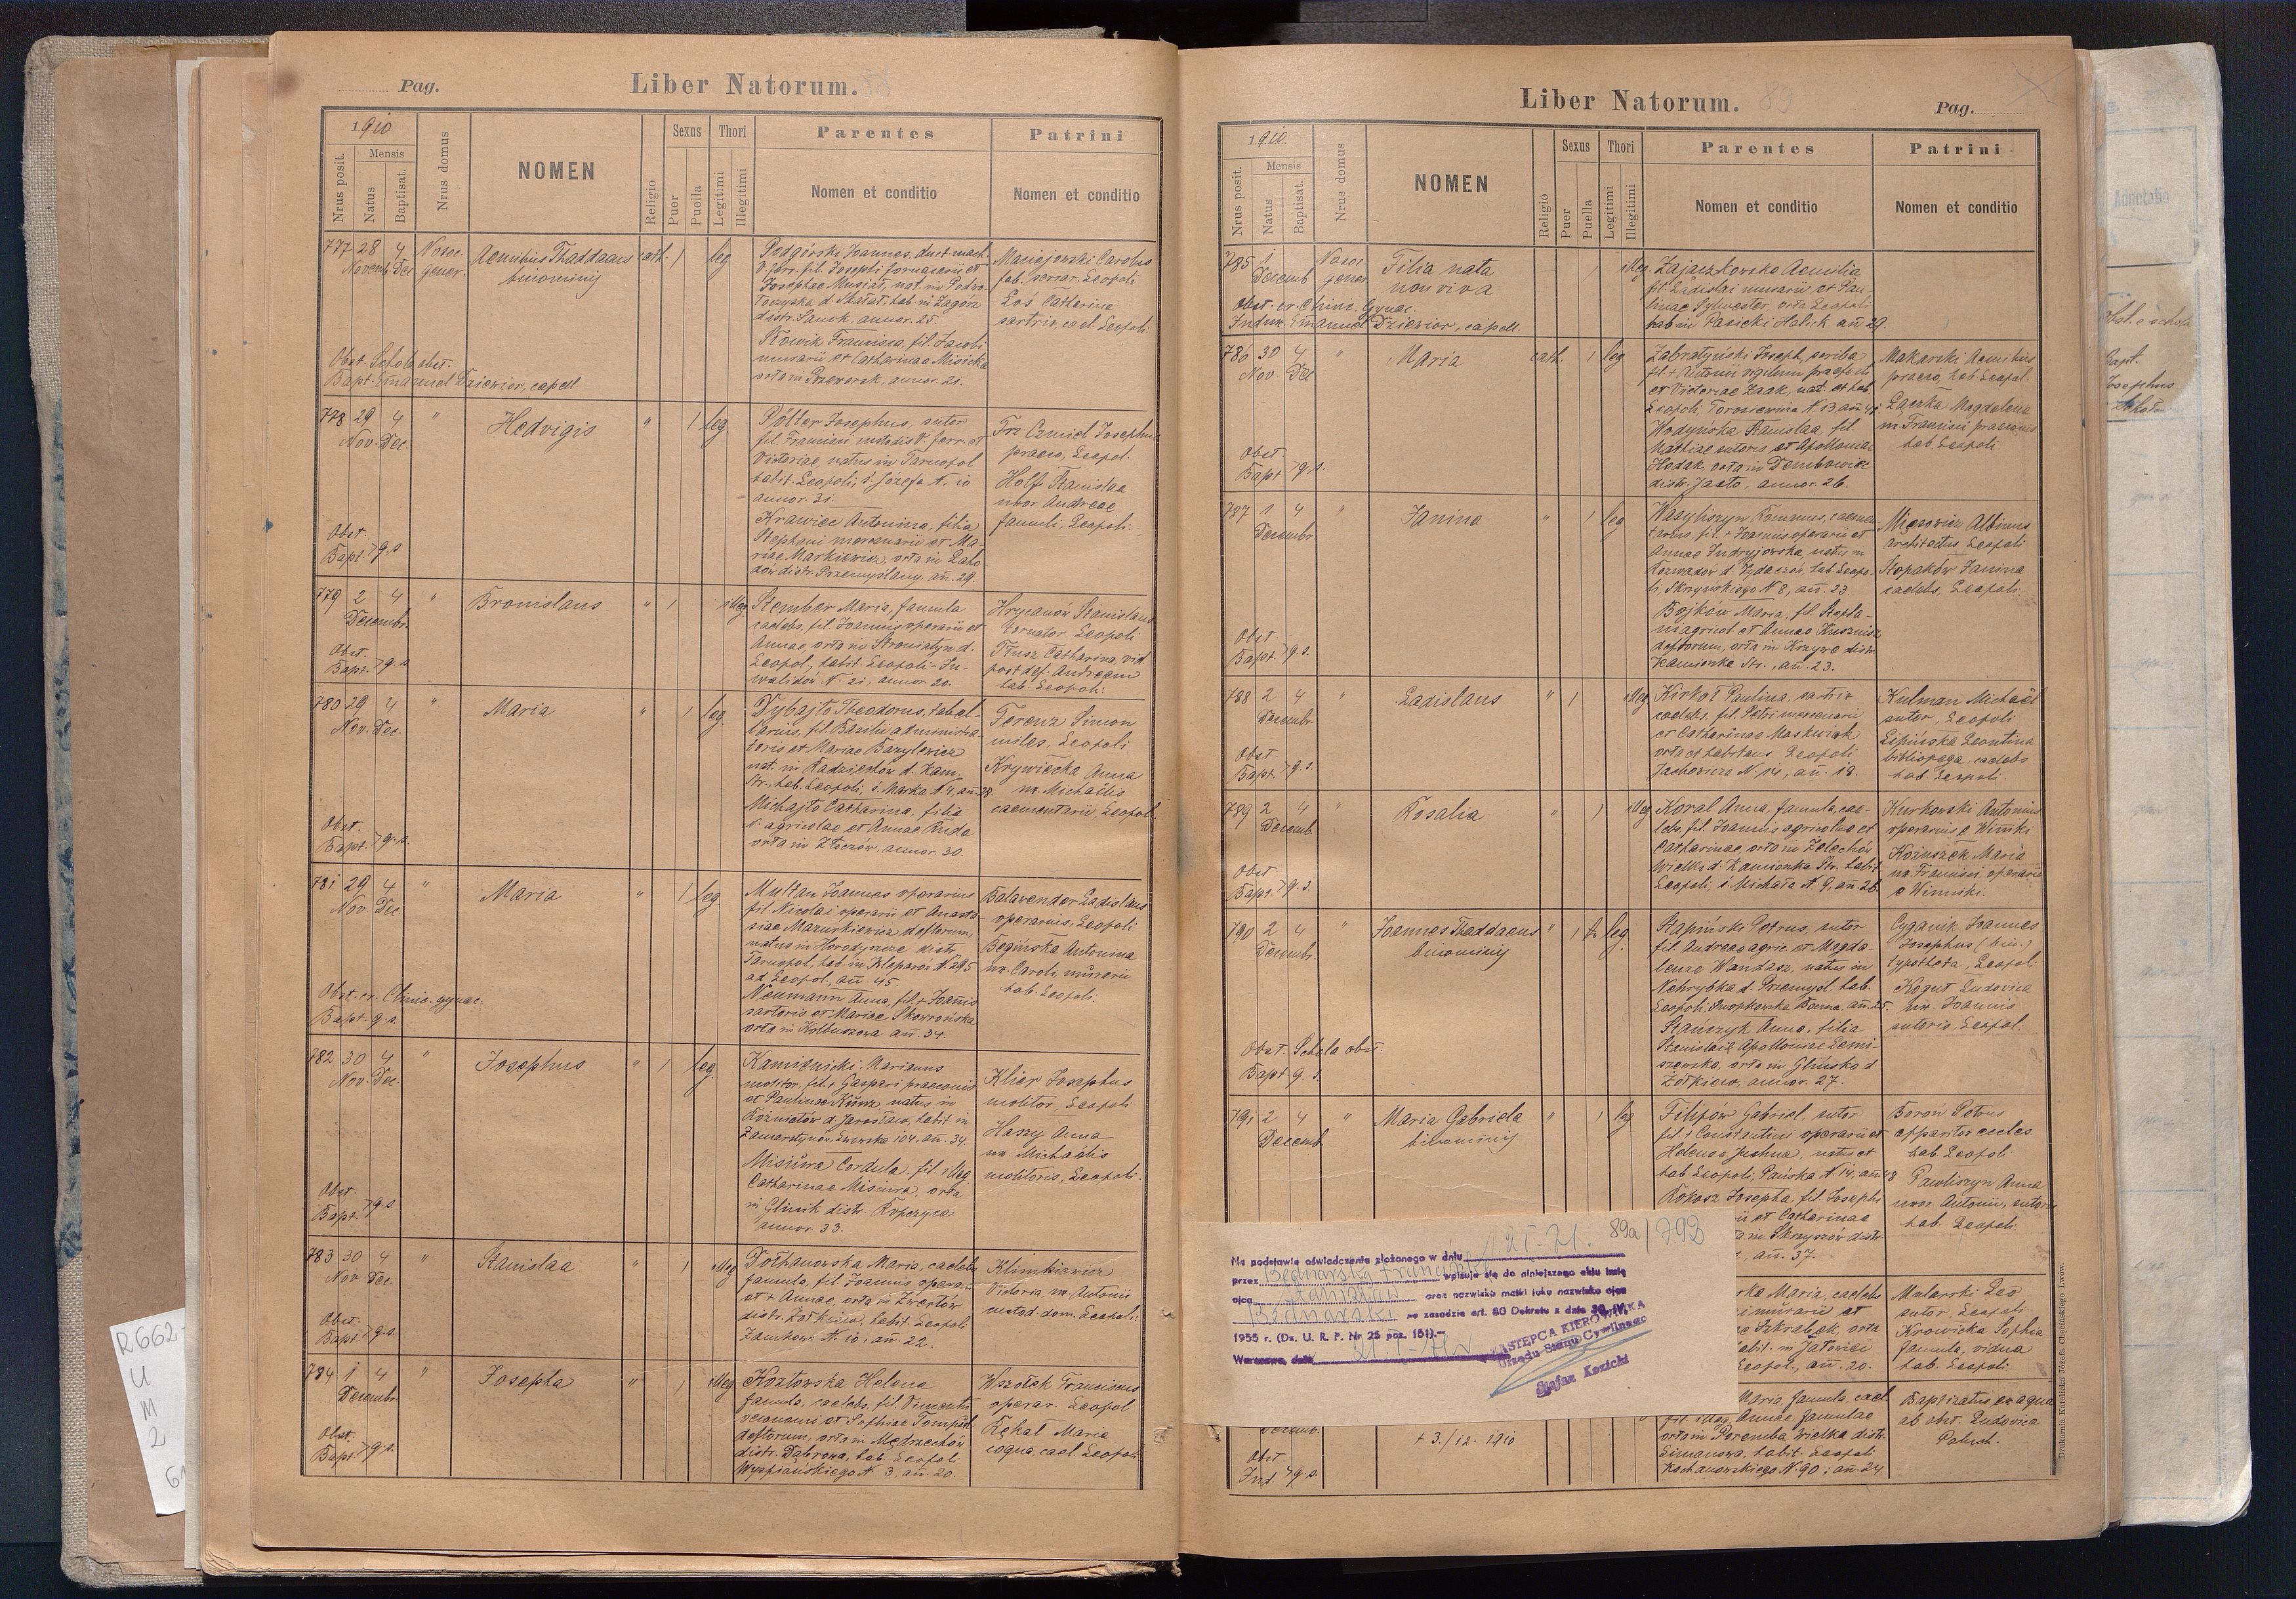 Pag.
Liber Natorum.
1910
Nrus posit.
Mensis
Natus
Baptisat.
Nrus domus
NOMEN
Religio
Sexus
Puer
Puella
Thori
Legitimi
Illegitimi
Parentes
Nomen et conditio
Patrini
Nomen et conditio
777 28 4 Nosoc. Aemilius Thaddaeus cath. 1 leg
Novemb Dec gener. binominis
Podgórski Joannes, duct. mach.
V. ferr. fil. Josephi fornacerii et
Josephae Musiał, nat. in Podwo-
łoczyska d. Skałat, hab. in Zagórz
distr. Sanok, annor. 25.
Nowik Francisca, fil. Jacobi
murarii et Catharinae Misicka
orta in Przeworsk, annor. 21.
Maciejowski Carolus
fab. ferrar. Leopoli
Łoś Catharina
sartrix, cael. Leopoli.
Obst. Schola obst.
Bapt. Emanuel Dziewior, capell.
778 29 4 " Hedvigis " 1 leg.
Nov. Dec.
Pötter Josephus, sutor
fil. Francisci custodis V. ferr. et
Victoriae, natus in Tarnopol
habit. Leopoli, ś. Józefa N. 10
annor. 31.
Krawiec Antonina, filia
Stephani mercenarii et Ma-
riae Markiewicz, orta in Laho-
dów distr. Przemyślany, ann. 29.
Czmiel Josephus
praeco, Leopol.
Holf Stanislaa
uxor Andreae
famuli, Leopoli.
Obst.
Bapt. q. s.
779 2 4 " Bronislaus " 1 illeg
Decembr.
Stember Maria, famula
caelebs, fil. Joannis operarii et
Annae, orta in Stroniatyn d.
Leopol, habit. Leopoli - In-
walidów N. 21, annor. 20.
Hrycanów Stanislaus
tornator Leopoli
Tłusz Catharina, vid.
post def. Andream
hab. Leopoli.
Obst.
Bapt. q. s.
780 29 4 " Maria " 1 leg.
Nov. Dec.
Dybajło Theodorus, tabel-
larius, fil. Basilii administra-
toris et Mariae Bazylewicz
nat. in Radziechów d. Kam.
Str., hab. Leopoli, ś. Marka N 4, ann 28.
Michajło Catharina, filia
agricolae et Annae Ruda
orta in Złoczów, annor. 30.
Ferenz Simon
miles, Leopoli
Krywiecka Anna
ux. Michaëlis
caementarii, Leopol.
Obst.
Bapt. q. s.
781 29 4 " Maria " 1 leg
Nov. Dec.
Multan Joannes operarius
fil. Nicolai operarii et Anasta-
siae Mazurkiewicz defltorum,
natus in Horodyszcze distr.
Tarnopol, hab. in Kleparów N 295
ad Leopol., ann. 45.
Neumann Anna, fil. + Joannis
sartoris et Mariae Skowrońska
orta in Kolbuszowa ann. 34.
Balawender Ladislaus
operarius, Leopoli
Begińska Antonina
ux. Caroli murarii
hab. Leopoli.
Obst. ex Clinic. gynaec.
Bapt. q. s.
782 30 4 " Josephus " 1 leg.
Nov. Dec.
Kamienicki Marianus
molitor, fil. + Gaspari praeconis
et Paulinae Kunz, natus in
Rożniatów d. Jarosław, habit in
Zamarstynów, Lwowska 104, ann. 34
Misiura Cordula, fil. illeg.
Catharinae Misiura, orta
in Glinik distr. Ropczyce
annor. 33.
Klier Josephus
molitor, Leopoli
Haszy Anna
ux. Michaëlis
molitoris, Leopoli.
Obst.
Bapt. q. s.
783 30 4 " Stanislaa " 1 illeg
Nov. Dec.
Dołhanowska Maria, caelebs
famula, fil. Joannis operarii
et + Annae, orta in Zwertów
distr. Żółkiew, habit. Leopoli
Zamkow. N. 10, ann. 22.
Klimkiewicz
Victoria, ux. Antonii
custod. dom. Leopoli.
Obst.
Bapt. q. s.
784 1 4 " Josepha " 1 illeg
Decembr.
Kozłowska Helena
famula, caelebs, fil. Vincentii
oeconomi et Sophiae
defltorum, orta in Mędrzechów
distr. Dąbrowa, hab. Leopoli
Wyspiańskiego N. 3, ann. 20.
Wszołek Franciscus
operar. Leopol
Rękal Maria
coqua cael. Leopoli
Obst.
Bapt. q. s.
Liber Natorum. 89
Pag.
1910.
Nrus posit.
Mensis
Natus
Baptisat.
Nrus domus
NOMEN
Religio
Sexus
Puer
Puella
Thori
Legitimi
Illegitimi
Parentes
Nomen et conditio
Patrini
Nomen et conditio
785 1 Nosoc Filia nata 1 illeg.
Decemb gener non viva
Zajaczkowska Aemilia
fil. Ladislai murarii et Pau-
linae Sylwester, orta Leopoli
hab in Pasieki Halick ann 29.
Obst. ex Clinic. Gynaec.
Indux. Emanuel Dziewior, capell.
786 30 4 " Maria cath. 1 leg
Nov Dec
Zabratyński Joseph, scriba
fil + Antonii vigilum praefecti
et Victoriae Zaak, nat. et hab.
Leopoli, Torosiewicza N. 13, ann 41
Wodyńska Stanislaa, fil.
Mathiae sutoris et Apolloniae
Hodak, orta in Dembowiec
distr. Jasło, annor. 26.
Makarski Aemilius
praeco, hab. Leopol.
Łączka Magdalena
ux Francisci praeconis
hab. Leopoli.
Obst
Bapt q. s.
787 1 4 " Janina " 1 leg
Decembr.
Wasyliszyn Romanus, caemen-
tarius, fil. + Joannis operarii et
Annae Indryjowska, natus in
Rozwadów d. Żydaczów, hab. Leopo-
li, Skrzyńskiego N 8, ann. 23.
Bojków Maria, fil. Stepha-
ni agricol et Annae
defltorum, orta in Krzywe distr.
Kamionka Str., ann. 23.
Mięsowicz Albinus
architectus Leopoli
Stopaków Janina
caelebs, Leopoli.
Obst
Bapt q. s.
788 2 4 " Ladislaus " 1 illeg
Decembr.
Kirkoł Paulina, sartrix
caelebs, fil. Petri mercenarii
et Catharinae Moskwiak
orta et habitans Leopoli
Jachowicza N. 14, ann. 18.
Kulman Michaël
sutor, Leopoli
Lipińska Leontina
bibliopega, caelebs
hab. Leopoli
Obst.
Bapt. q. s.
789 2 4 " Rosalia " 1 illeg
Decemb.
Koral Anna, famula, cae-
lebs, fil. Joannis agricolae et
Catharinae, orta in Żelechów
Wielki d. Kamionka Str. habit.
Leopoli, ś. Michała N. 9, ann 26.
Kurkowski Antonius
operarius e Winniki
Kożuszek Maria
ux Francisci operarii
e Winniki.
Obst
Bapt q. s.
790 2 4 " Joannes Thaddaeus " 1 leg.
Decembr. binominis
Stapiński Petrus, sutor
fil. Andreae agric et Magda-
lenae Wandasz, natus in
Nehrybka d. Przemyśl hab.
Leopoli, Snopkowska, ann. 25.
Stańczyk Anna, filia
Stanislai et Apolloniae Lemi-
szewska, orta in Glińsko d.
Żółkiew, annor. 27.
Cyganik Joannes
Josephus (bin.)
typotheta, Leopol.
Kogut Ludovica
ux. Joannis
sutoris. Leopol.
Obst. Schola obst.
Bapt. q. s.
791 2 4 " Maria Gabriela " 1 leg
Decemb. binominis
Filipów Gabriel, sutor
fil. + Constantini operarii et
Helenae Juchna, natus et
hab. Leopoli, Pańska N 14, ann 48
Kokosz Josepha, fil. Josephi
et Catharinae
in Skrzyszów distr.
ann. 37.
Boroń Petrus
apparitor eccles
hab. Leopoli
Pawliszyn Anna
uxor Antonii, sutoris
hab. Leopoli
21.I.71. 89a/792
Na podstawie oświadczenia złożonego w dniu
przez Bednarską Franciszkę wpisuje się do niniejszego aktu imię
ojca Stanisław oraz nazwisko matki jako nazwisko ojca
Bednarski na zasadzie art. 80 Dekretu z dnia
1955 r. (Dz. U. R. P. Nr 25 poz. 151).—
Warszawa, dnia 21.I-71
ZASTĘPCA KIEROWNIKA
Urzędu Stanu Cywilnego
Stefan Kozicki
Maria, caelebs
murarii et
Szkrabek, orta
habit. in Jałowiec
Leopol., ann. 20.
Malarski Leo
sutor, Leopoli
Krowicka Sophia
famula, vidua
hab. Leopoli
Decemb.
+ 3./12. 1910
Maria, famula, cael.
fil. illeg. Annae famulae
orta in Poremba Wielka distr.
Limanowa, habit. Leopoli
Kochanowskiego N. 90; ann 24.
Baptizatus ex aqua
ab obst. Ludovica
Obst.
Ind. q. s.
Drukarnia Katolicka Józefa Chęcińskiego Lwów.
R662-
U
M
2
Annotatio
Bapt.
Josephus